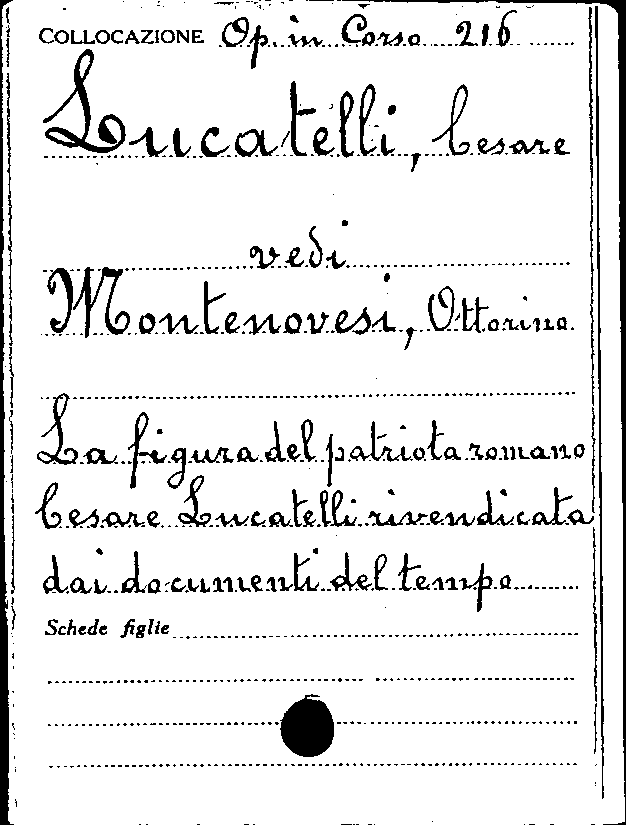 COLLOCAZIONE Op. in Corso 216
Lucatelli, Cesare
vedi
Montenovesi, Ottorino
La figura del patriota romano
Cesare Lucatelli rivendicata
dai documenti del tempo
Schede figlie